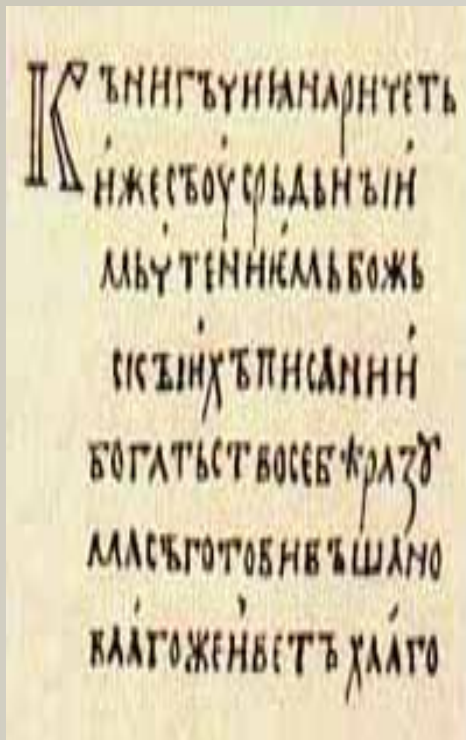 Кънигъчиꙗнаричеть
ижесъоусрьдьнꙑи
мьчтениѥмьбожь
сксъихъписании
богатьствосебѣразꙋ
масъготобивъшано
вааагоживетъхааго